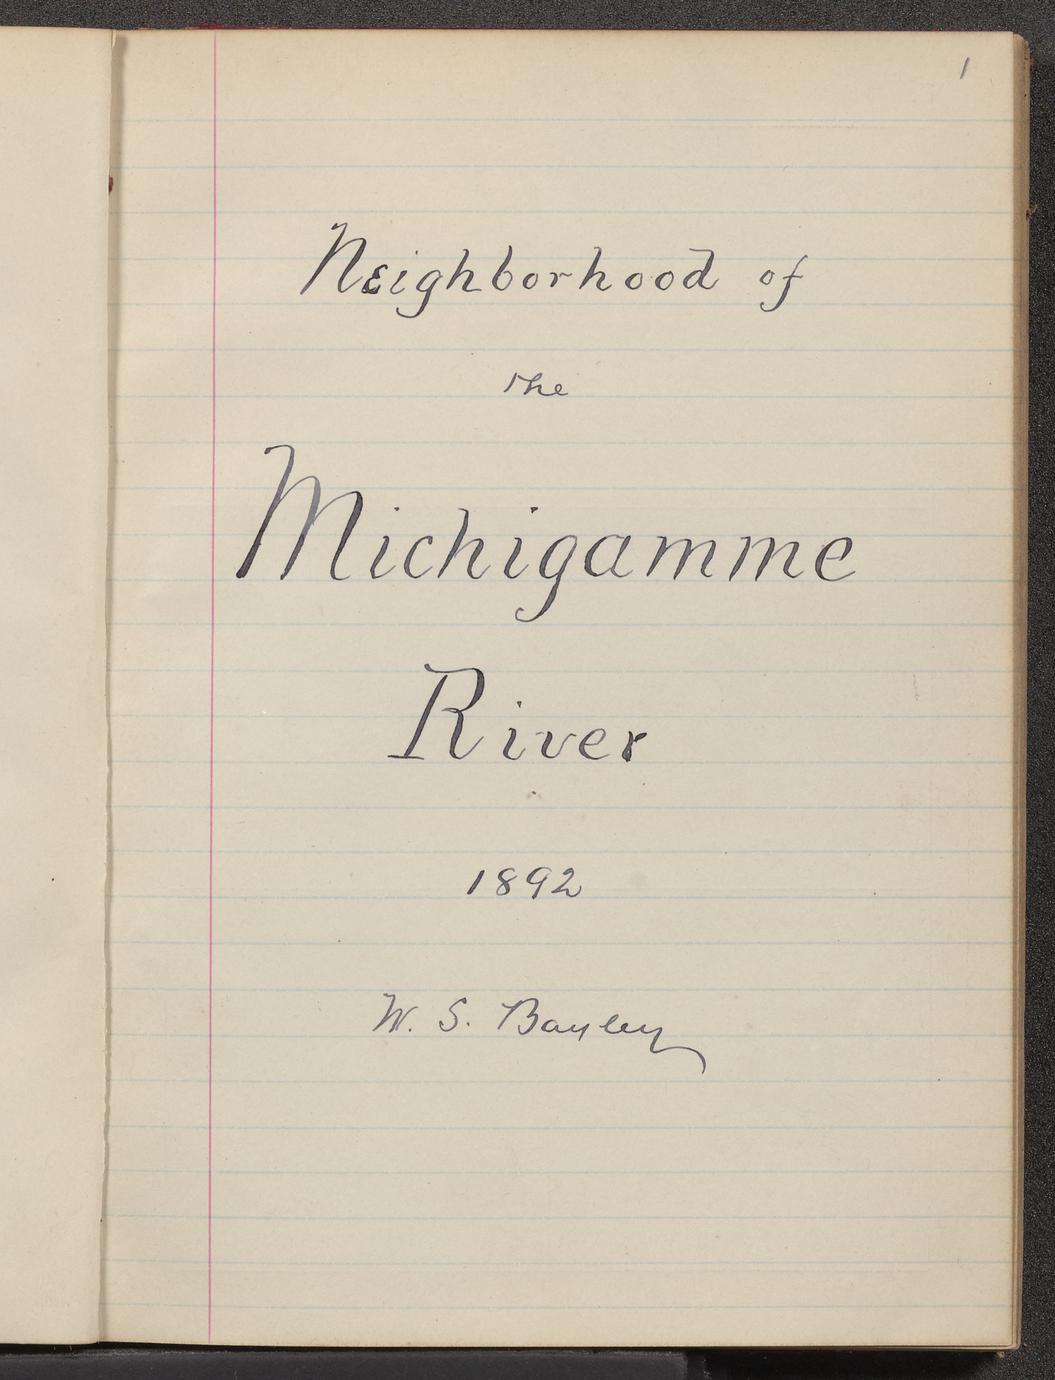 1
Neighborhood of
the
Michigamme
River
1892
W. S. Bayley